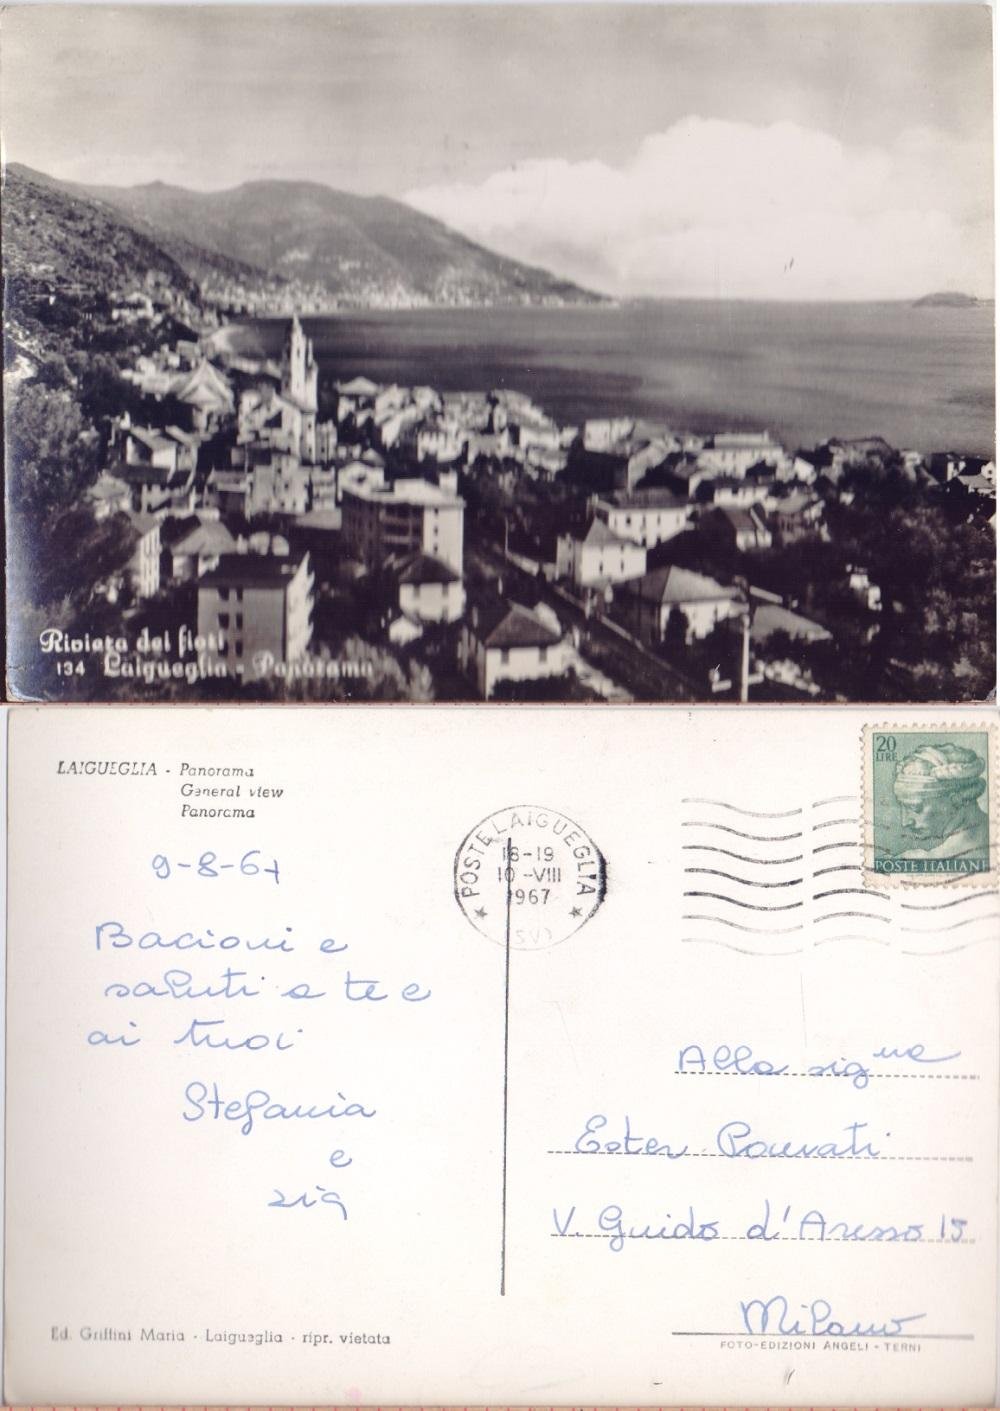 Riviera dei fiori
134 Laigueglia - Panorama
LAIGUEGLIA - Panorama
General view
Panorama
20
LIRE
POSTE ITALIANE
POSTE LAIGUEGLIA
18-19
10 -VIII
1967
(SV)
9-8-67
Bacioni e
saluti a te e
ai tuoi
Stefania
e
zia
Alla sig.na
Ester
V. Guido d'Arezzo 15
Milano
Ed. Griffini Maria - Laigueglia - ripr. vietata
FOTO-EDIZIONI ANGELI - TERNI